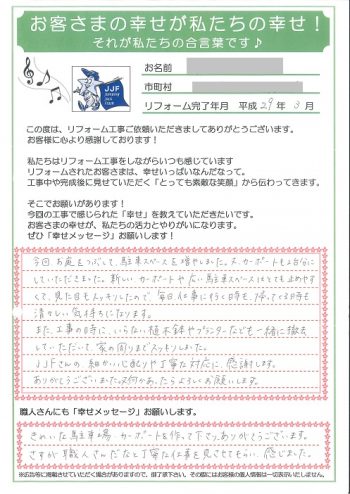 お客さまの幸せが私たちの幸せ！
それが私たちの合言葉です♪
JJF
お名前
市町村
リフォーム完了年月 平成29年3月
この度は、リフォーム工事ご依頼いただきましてありがとうございます。
お客様に心より感謝しております！
私たちはリフォーム工事をしながらいつも感じています
リフォームされたお客さまは、幸せいっぱいなんだなって。
工事中や完成後に見せていただく「とっても素敵な笑顔」から伝わってきます。
そこでお願いがあります！
今回の工事で感じられた「幸せ」を教えていただきたいです。
お客さまの幸せが、私たちの活力とやりがいになります。
ぜひ「幸せメッセージ」お願いします！
今回お庭をつぶして、駐車スペースを増やしました。又、カーポートも2台分に
していただきました。新しいカーポートや広い駐車スペースはとても止めやす
くて、見た目もスッキリしたので毎日仕事に行く時も、帰ってくる時も
清々しい気持ちになります。
また、工事の時に、いらない植木鉢やプランターなども一緒に撤去
していただいて、家の周りまでスッキリしました。
JJFさんの細かい心配りや丁寧な対応に、感謝します。
ありがとうございました。又何かあったらよろしくお願いします。
職人さんにも「幸せメッセージ」お願いします。
きれいな駐車場・カーポートを作って下さりありがとうございます。
さすが職人さんだなと丁寧な仕事を見させてもらい、感じました。
※広告等に掲載させていただく場合がありますので、御了承下さい。その際にはお客様の個人情報は一切表示いたしません。